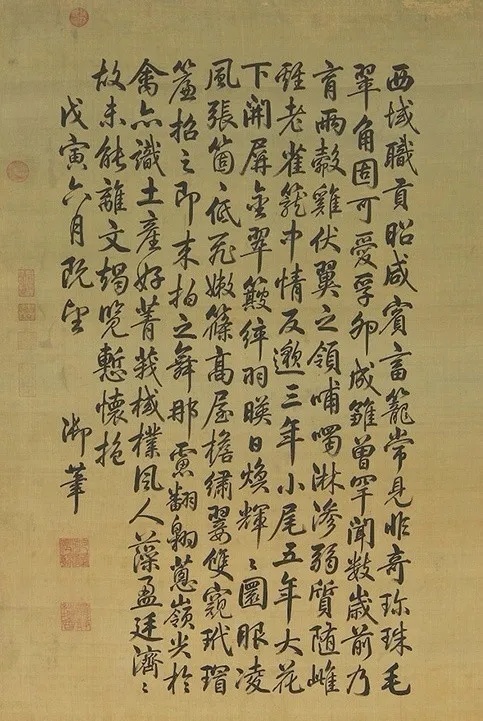 西域職貢昭咸賓畜籠常見非奇珍珠毛
翠角固可愛孚卵成雛曾罕聞數歲前乃
育兩鷇雞伏翼之領哺噣淋滲弱質隨雌
雄老雀籠中情反邈三年小尾五年大花
下開屏金翠簌綷羽暎日煥輝〻圜眼凌
風張箇〻低飛嫩篠高屋檐繡翣雙窺玳瑁
簾招之即來拍之舞那慮翻翱蔥嶺尖於
禽亦識土產好菁莪棫樸風人藻盈廷濟〻
故未能離文覽慙懷抱
戊寅六月既望
御筆